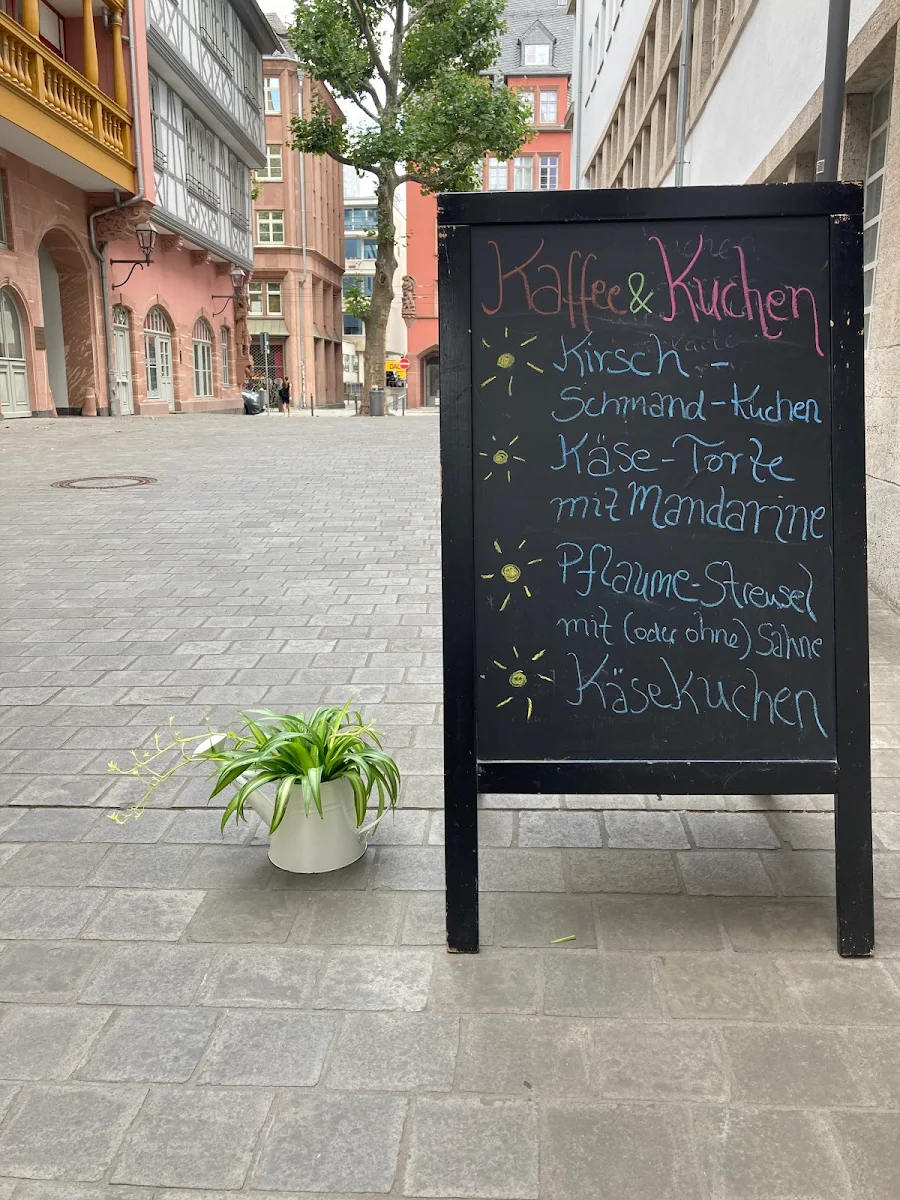 Kaffee & Kuchen
Kirsch -
Schmand-Kuchen
Käse-Torte
mit Mandarine
Pflaume-Streusel
mit (oder ohne) Sahne
Käsekuchen